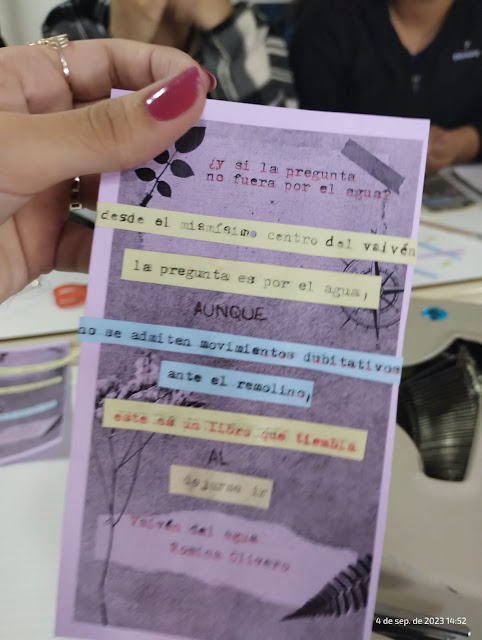 ¿y si la pregunta
no fuera por el agua?
desde el mismísimo centro del vaivén
la pregunta es por el agua,
AUNQUE
no se admiten movimientos dubitativos
ante el remolino,
este es un libro que tiembla
AL
dejarse ir
Vaivén del agua
Romina Olivero
4 de sep. de 2023 14:52